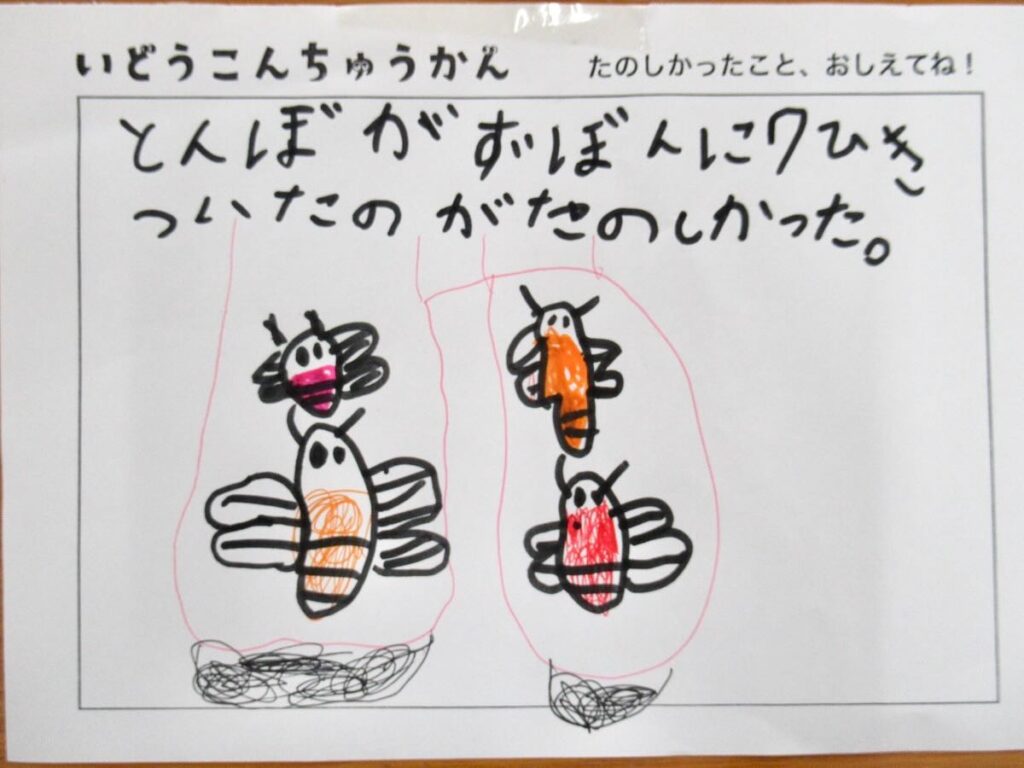 いどうこんちゅうかん
たのしかったこと、おしえてね！
とんぼがずぼんに7ひき
ついたのがたのしかった。